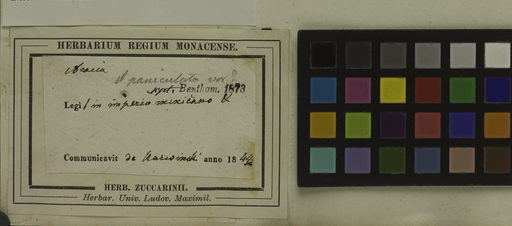 HERBARIUM REGIUM MONACENSE.
Acacia
paniculata var?
Bentham. 1873
Legi in imperio mexicano
Communicavit de Karwinski anno 18
HERB. ZUCCARINII.
Herbar. Univ. Ludov. Maximil.